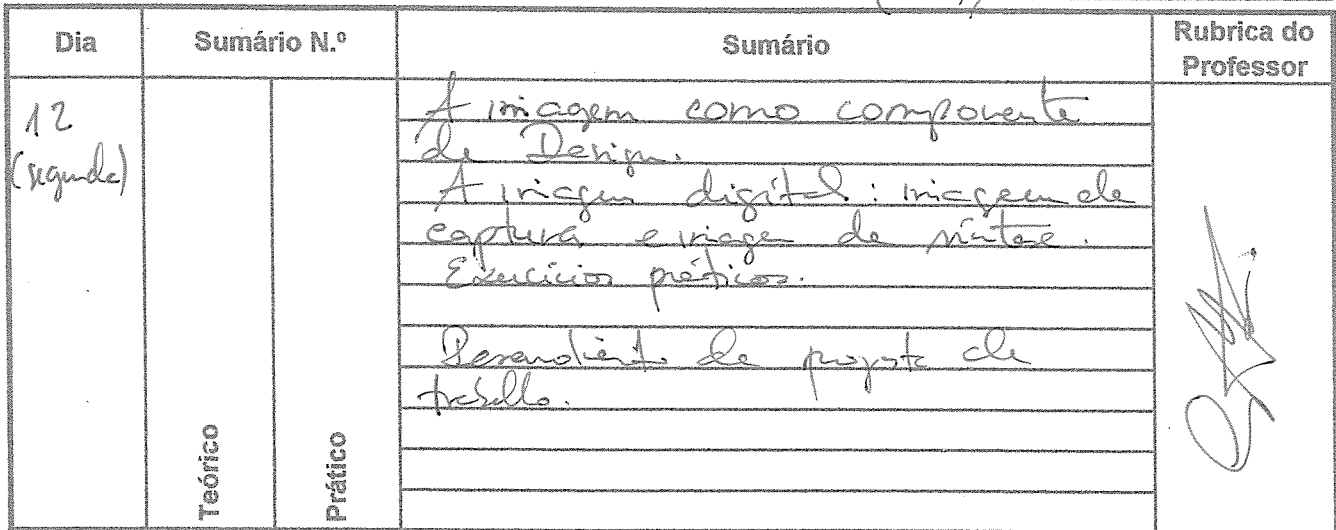 Dia Sumário N.º Sumário Rubrica do Professor
12
(segunda)
A imagem como componente
de Design.
A imagem digital: imagem de
captura e imagem de síntese.
Exercícios práticos.
Desenvolvimento de projecto de
trabalho.
Teórico
Prático